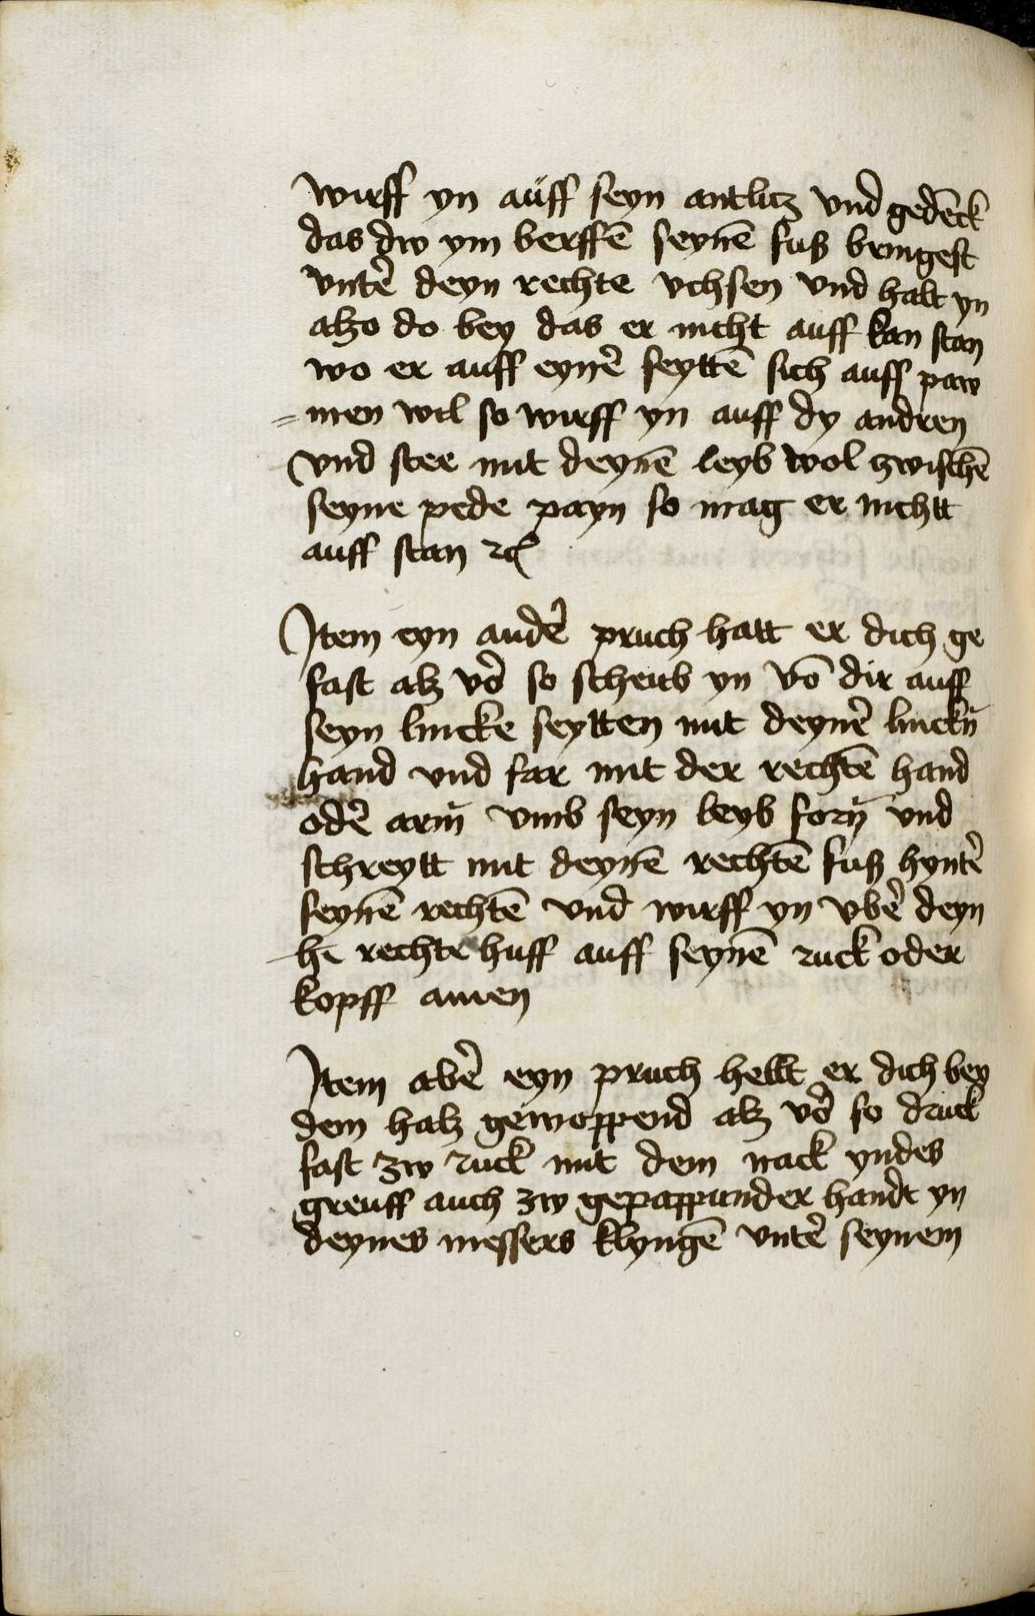 wirff yn auff seyn antlitz vnd gedēck
das dw ym berffē seynē fuß bringest
vntẽ deyn rechte vchsen vnd halt yn
alzo do bey das er nicht auff kan stan
wo er auff eynẽ seyttē sich auff paw
=men wil so wirff yn auff dy andren
vnd stee mit deynē leyb wol zwischē
seyne pede payn so mag er nichtt
auff stan ꝛc
Item eyn andẽ pruch hatt er dich ge
fast alz võ so scheub yn vō dir auff
seyn lincke seytten mit deynẽ linckn̄
hand vnd far mit der rechtē hand
odẽ arm̄ vmb seyn leyb forn̄ vnd
schreytt mit deynē rechtē fuß hyntẽ
seynē rechtē vnd wirff yn vbẽ deyn
he rechte huff auff seynē ruck oder
kopff amen
Item abẽ eyn pruch hellt er dich bey
dem halz gewoppend alz võ so druck
fast zw ruck mit dem nack yndes
greuff auch zw gepappunder handt yn
deynes messers klyngē vntẽ seynem